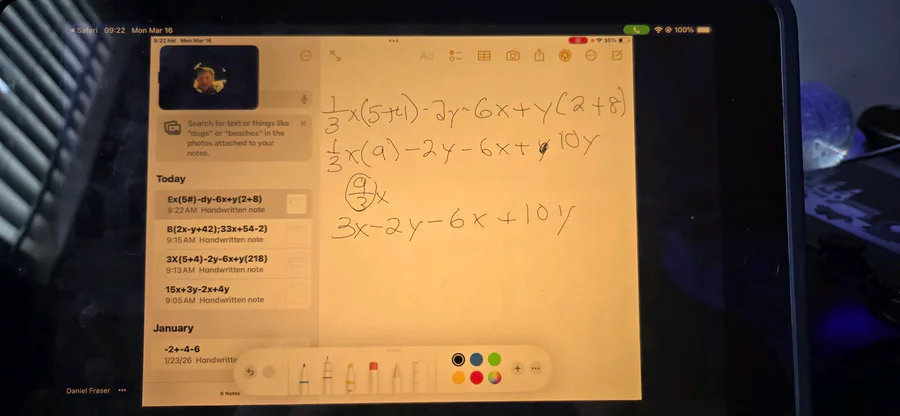 Safari 09:22 Mon Mar 16
100%
9:22 AM Mon Mar 16
35%
Aa
Search for text or things like
"dogs" or "beaches" in the
photos attached to your
notes.
Today
Ex(5#)-dy-6x+y(2+8)
9:22 AM Handwritten note
B(2x-y+42);33x+54-2)
9:15 AM Handwritten note
3X(5+4)-2y-6x+y(218)
9:13 AM Handwritten note
15x+3y-2x+4y
9:05 AM Handwritten note
January
-2+-4-6
1/23/26 Handwritte
6 Notes
Daniel Fraser
1/3 x(5+4)-2y-6x+y(2+8)
1/3 x(9)-2y-6x+10y
9/3 x
3x-2y-6x+10y